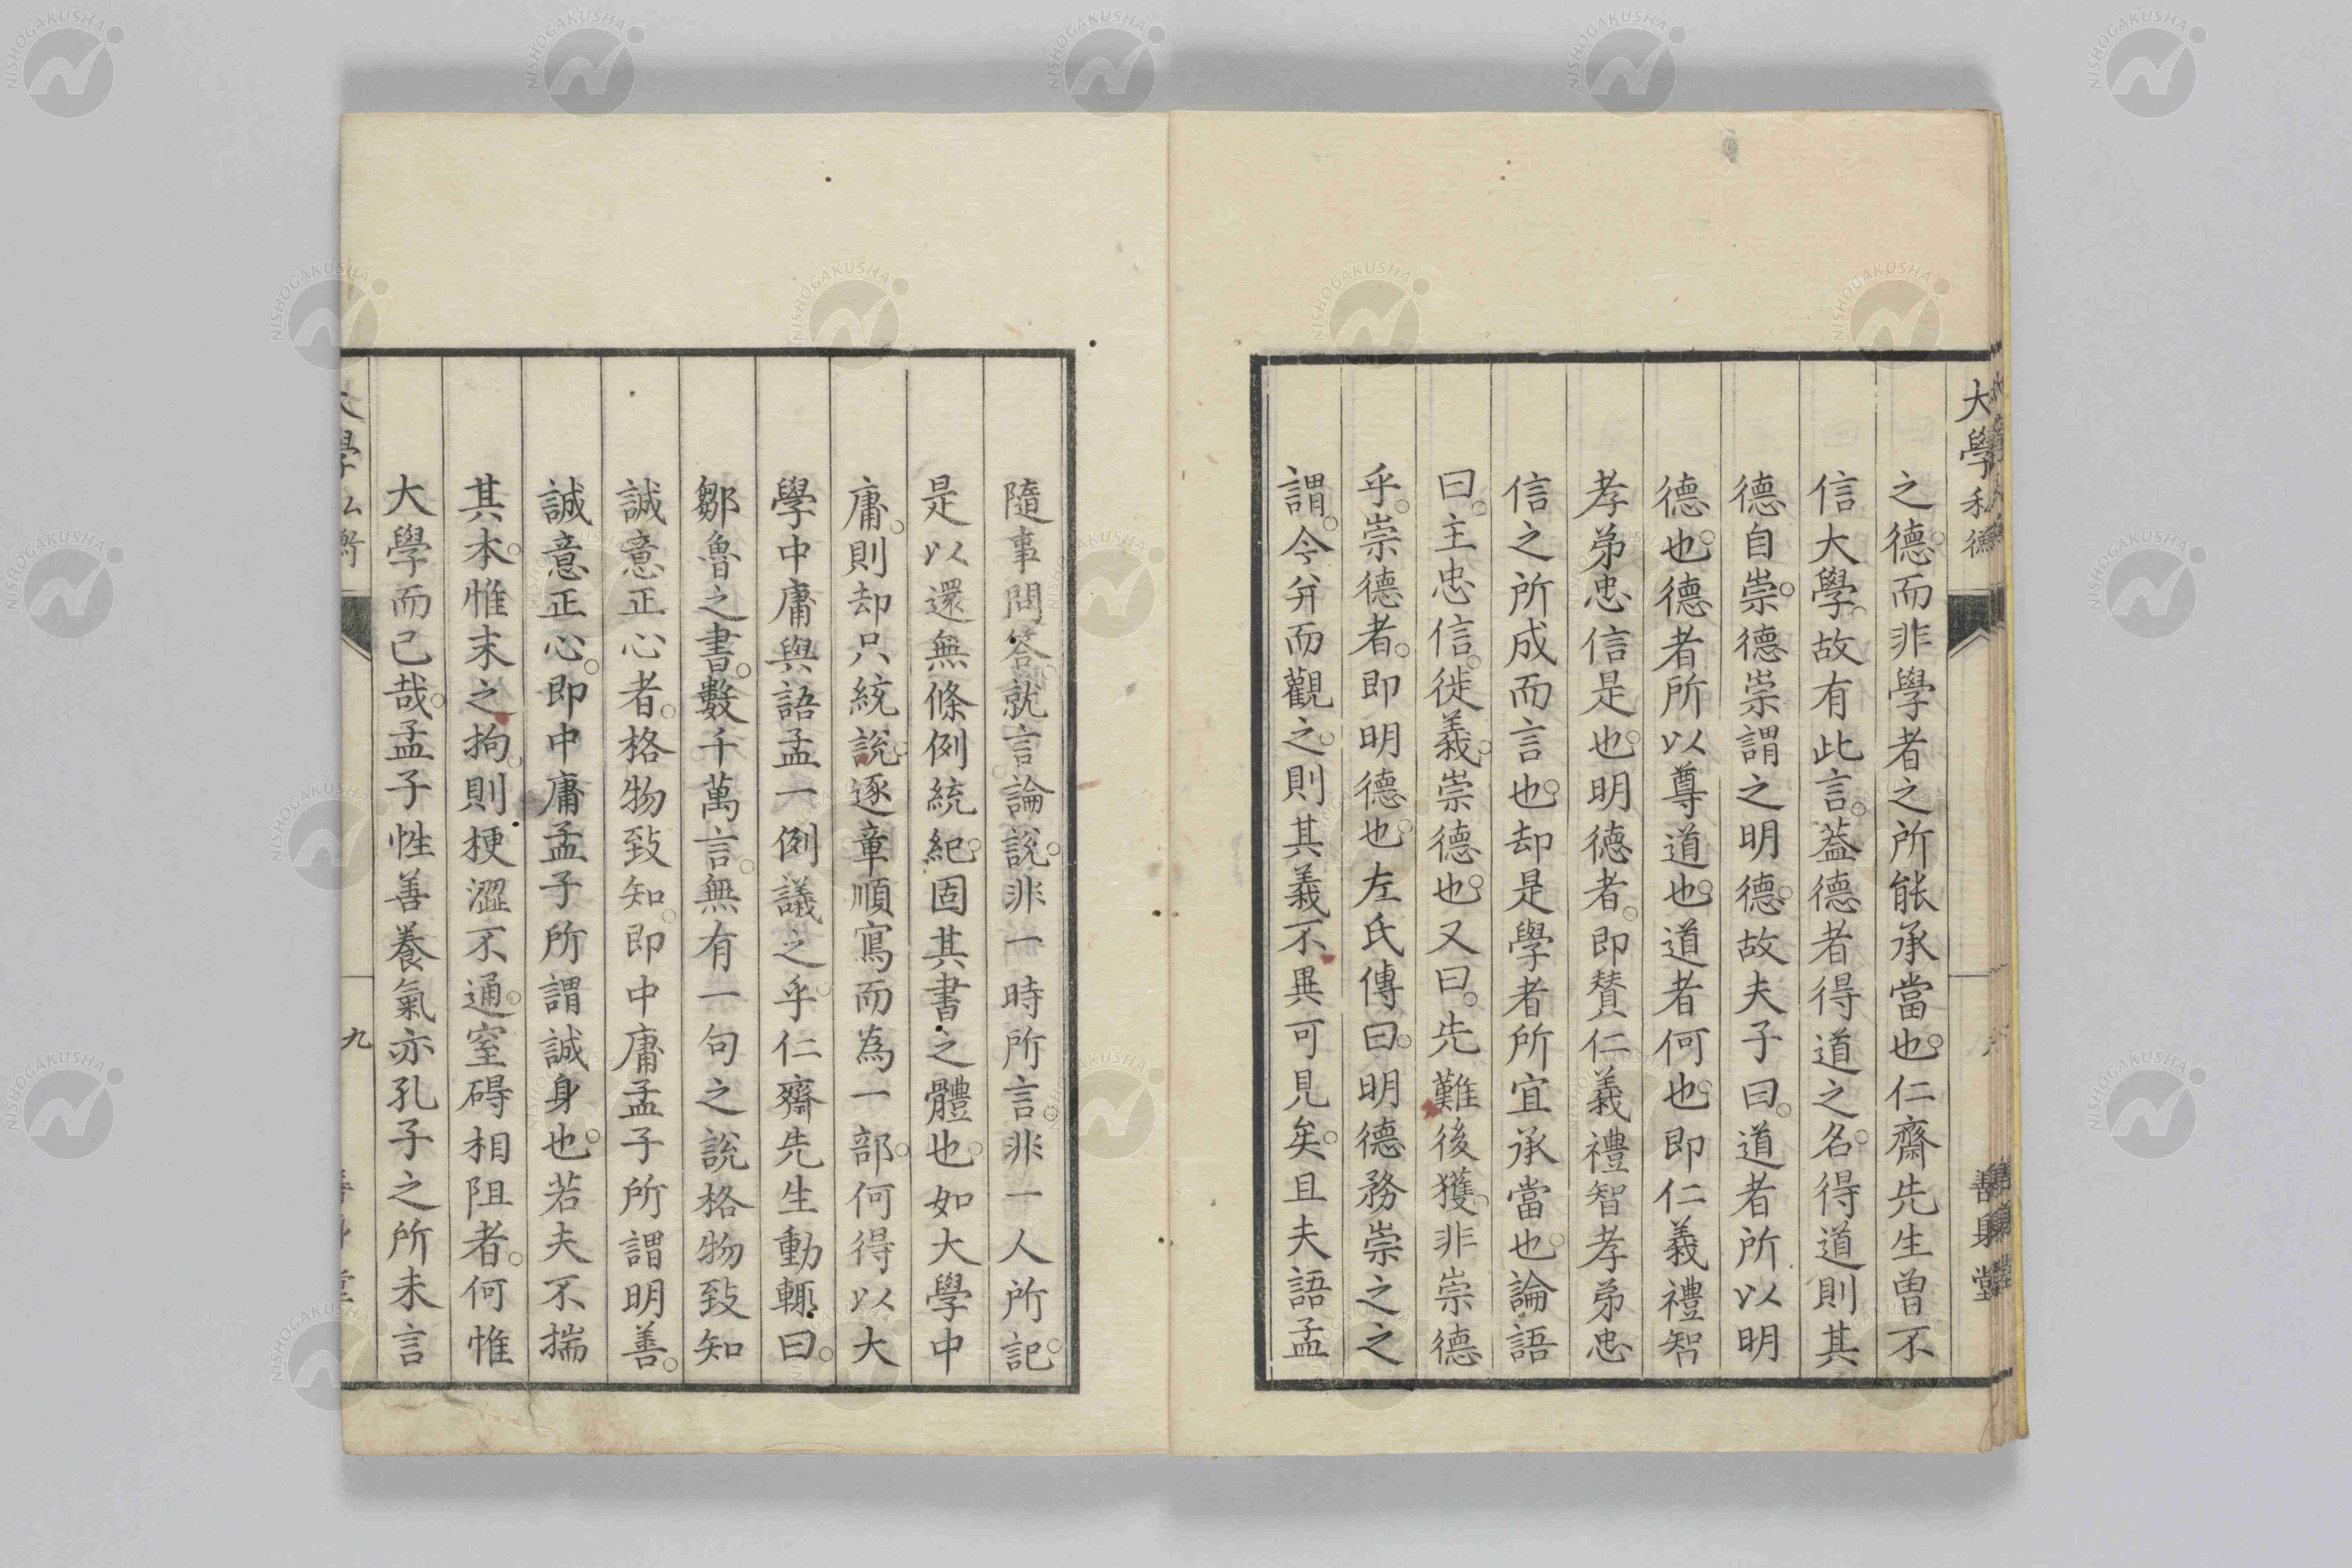 大學私衡
之德。而非學者之所能承當也。仁齋先生曽不
信大學。故有此言。葢德者得道之名。得道則其
德自崇。德崇謂之明德。故夫子曰。道者所以明
德也。德者所以尊道也。道者何也。即仁義禮智
孝弟忠信是也。明德者。即賛仁義禮智孝弟忠
信之所成而言也。却是學者所宜承當也。論語
曰。主忠信。徙義。崇德也。又曰。先難後獲。非崇德
乎。崇德者。即明德也。左氏傳曰。明德務崇之之
謂。今并而觀之。則其義不異可見矣。且夫語孟
善身堂
隨事問答。就言論說。非一時所言。非一人所記。
是以還無條例統紀。固其書之體也。如大學中
庸。則却只統說。逐章順寫而為一部。何得以大
學中庸與語孟一例議之乎。仁齋先生動輙曰。
鄒魯之書。數千萬言。無有一句之說格物致知
誠意正心者。格物致知。即中庸孟子所謂明善。
誠意正心。即中庸孟子所謂誠身也。若夫不揣
其本。惟末之拘。則梗澀不通。窒碍相阻者。何惟
大學而已哉。孟子性善養氣亦孔子之所未言
九
NISHOGAKUSHA